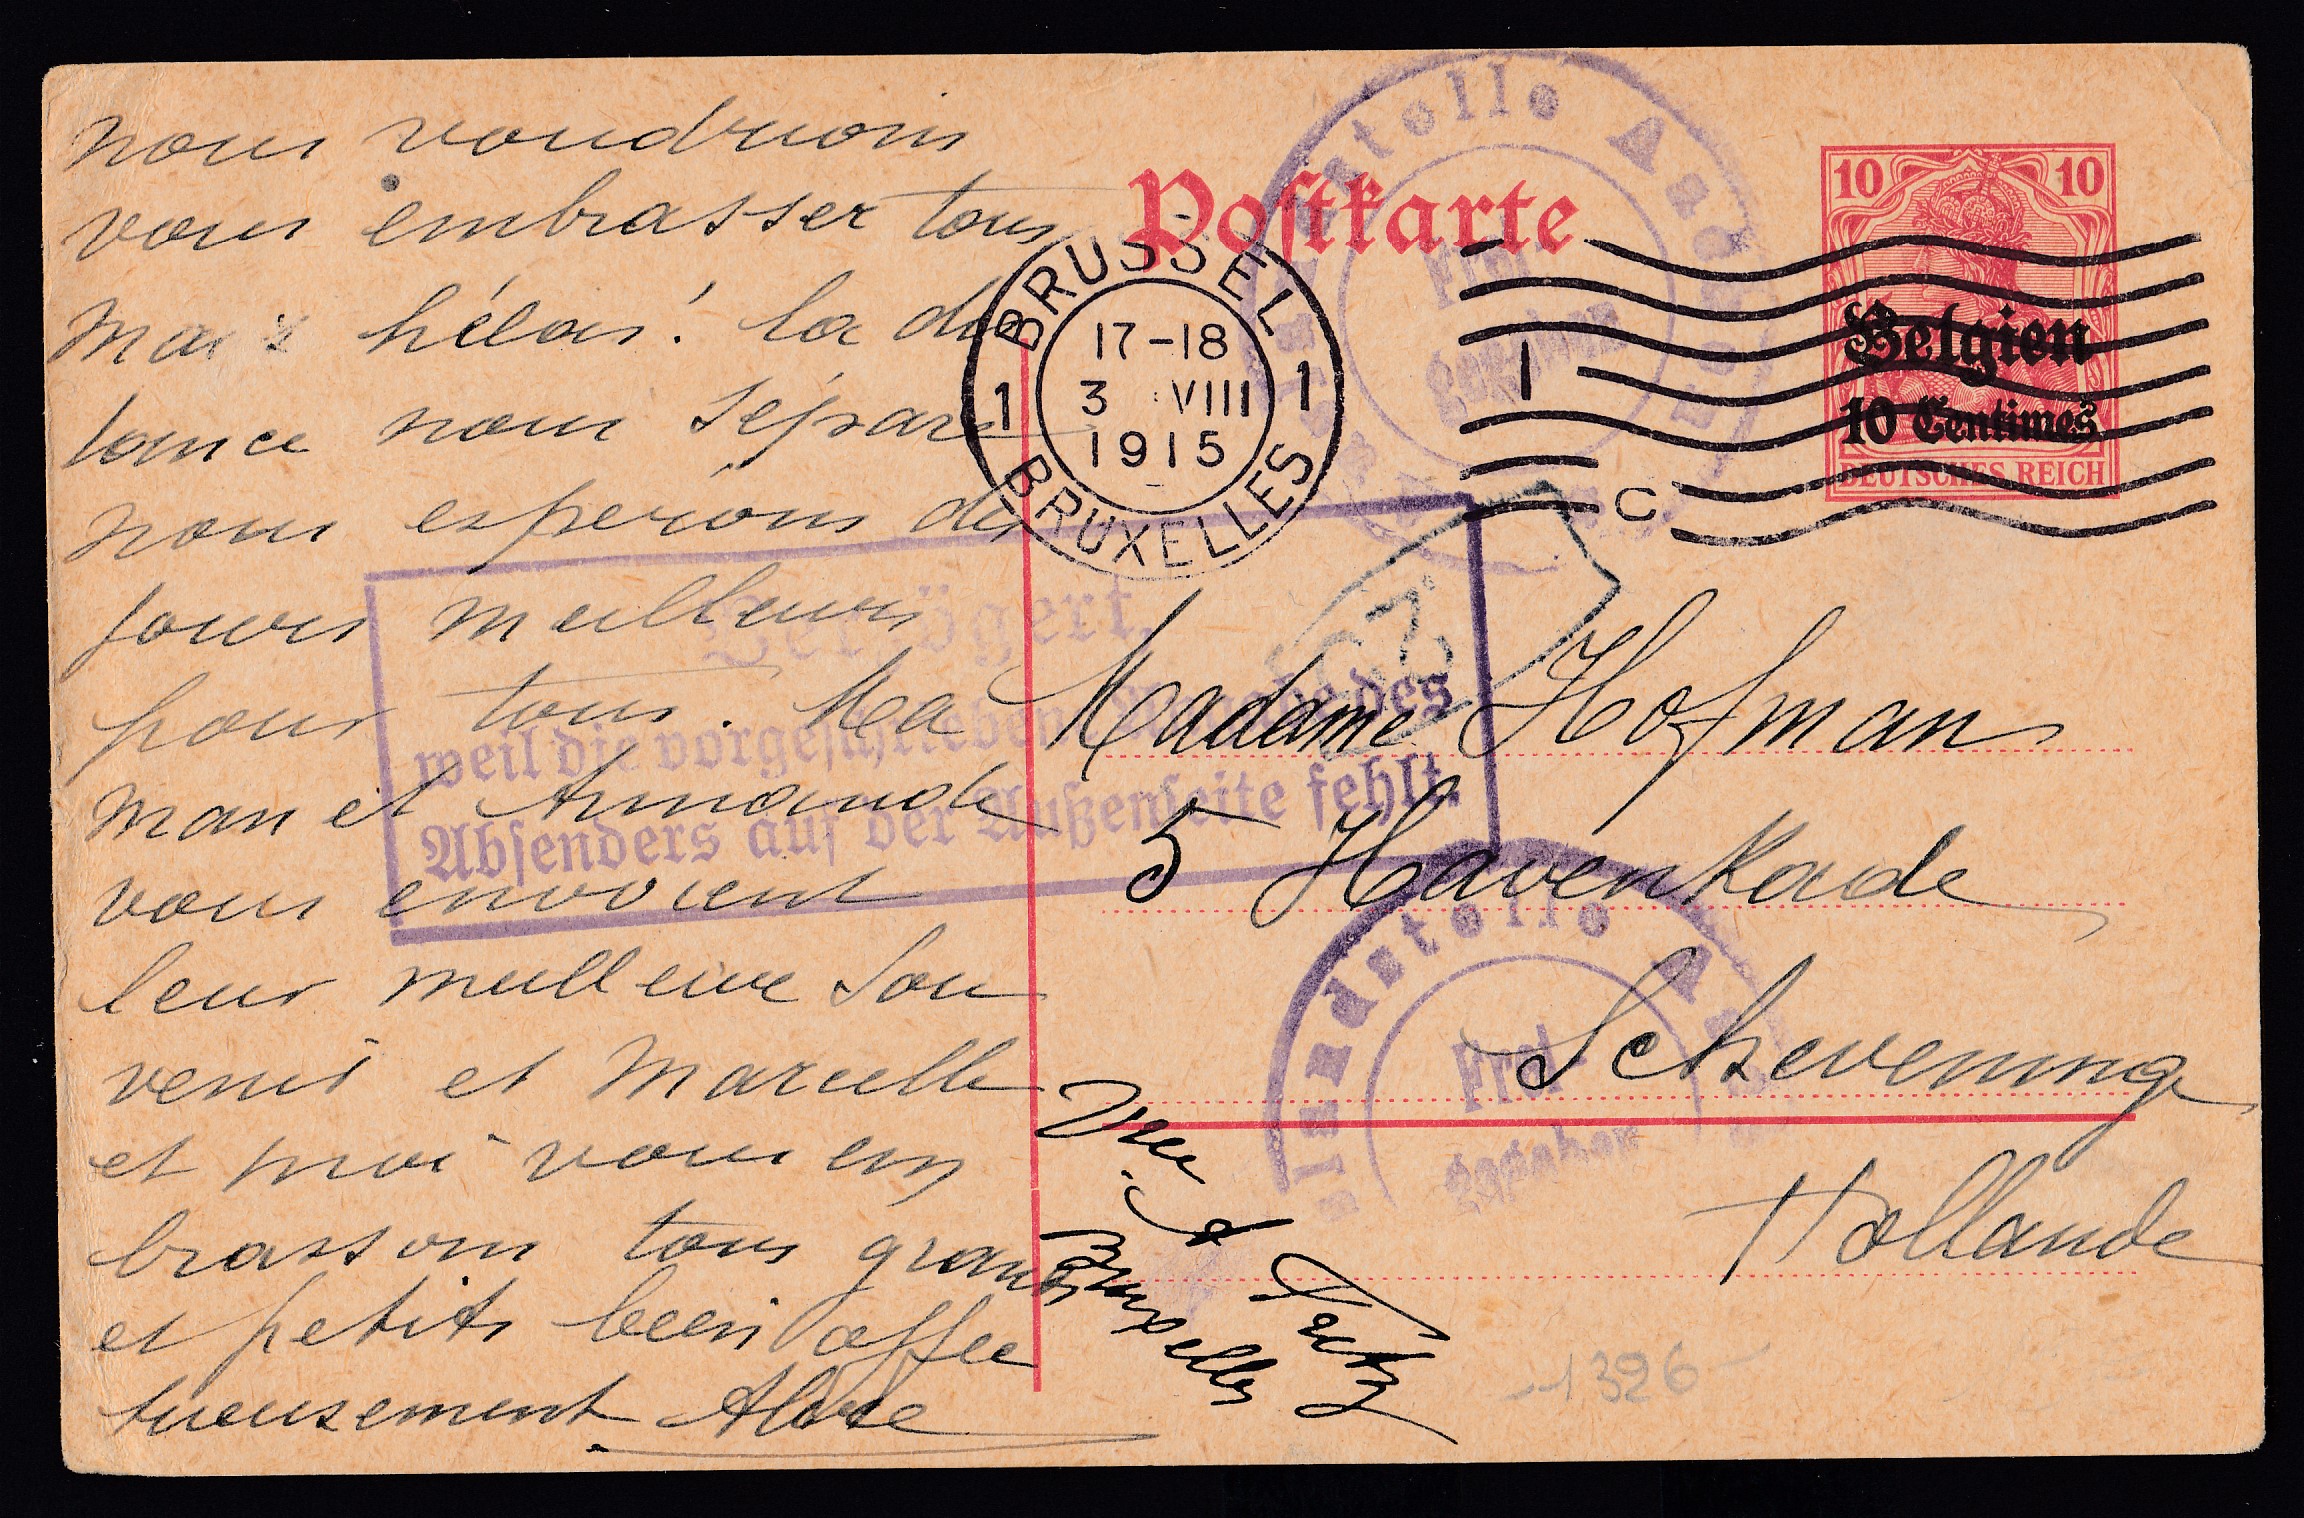 nous voudrions
vous embrasser tous
Mais hélas! la dis
tance nous sépare
nous espérons des
jours meilleurs
pour tous. Ma
man et Armande
vous envoient
leur meilleure Sou
venir et Marcelle
et moi vous em
brassons tous grands
et petits bien affec
tueusement
Postkarte
10 10
Belgien
10 Centimes
DEUTSCHES REICH
BRUSSEL
1 1
17-18
3 VIII
1915
BRUXELLES
1
C
Auslandstelle
Frei-
gegeben
Verzögert,
weil die vorgeschriebene Angabe des
Absenders auf der Außenseite fehlt.
Madame Hofman
5 Havenkade
Schevening
Hollande
Auslandstelle
Frei-
gegeben
Bruxelles
1326